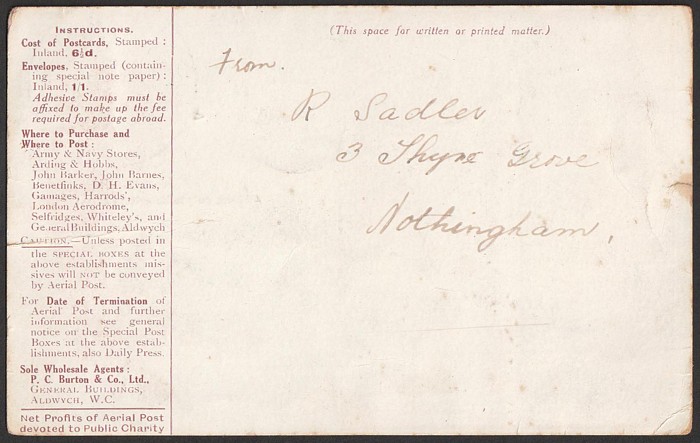 INSTRUCTIONS.
Cost of Postcards, Stamped :
Inland, 6½d.
Envelopes, Stamped (contain-
ing special note paper) :
Inland, 1/1.
Adhesive Stamps must be
affixed to make up the fee
required for postage abroad.
Where to Purchase and
Where to Post :
Army & Navy Stores,
Arding & Hobbs,
John Barker, John Barnes,
Benetfinks, D. H. Evans,
Gamages, Harrods',
London Aerodrome,
Selfridges, Whiteley's, and
General Buildings, Aldwych
CAUTION.—Unless posted in
the SPECIAL BOXES at the
above establishments mis-
sives will NOT be conveyed
by Aerial Post.
For Date of Termination of
Aerial Post and further
information see general
notice on the Special Post
Boxes at the above estab-
lishments, also Daily Press.
Sole Wholesale Agents :
P. C. Burton & Co., Ltd.,
GENERAL BUILDINGS,
ALDWYCH, W.C.
Net Profits of Aerial Post
devoted to Public Charity
(This space for written or printed matter.)
From.
R Sadler
3 Thyra Grove
Nothingham,